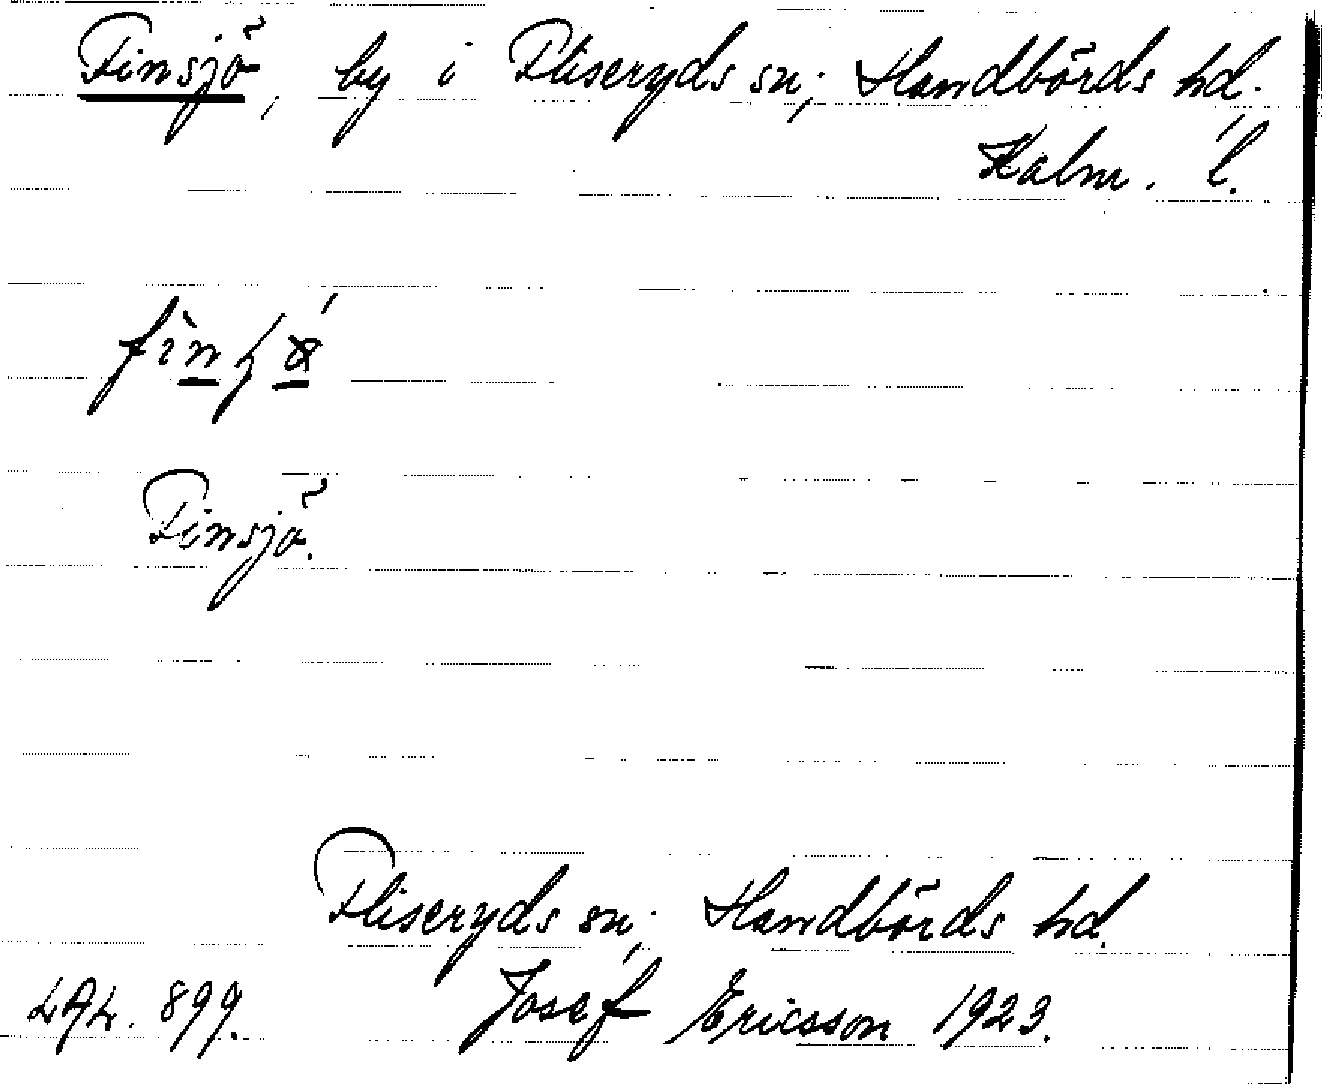 Finsjö, by i Fliseryds sn; Handbörds hd.
Kalm. l.
Finsjö.
Fliseryds sn; Handbörds hd.
LAL. 899. Josef Ericsson 1923.